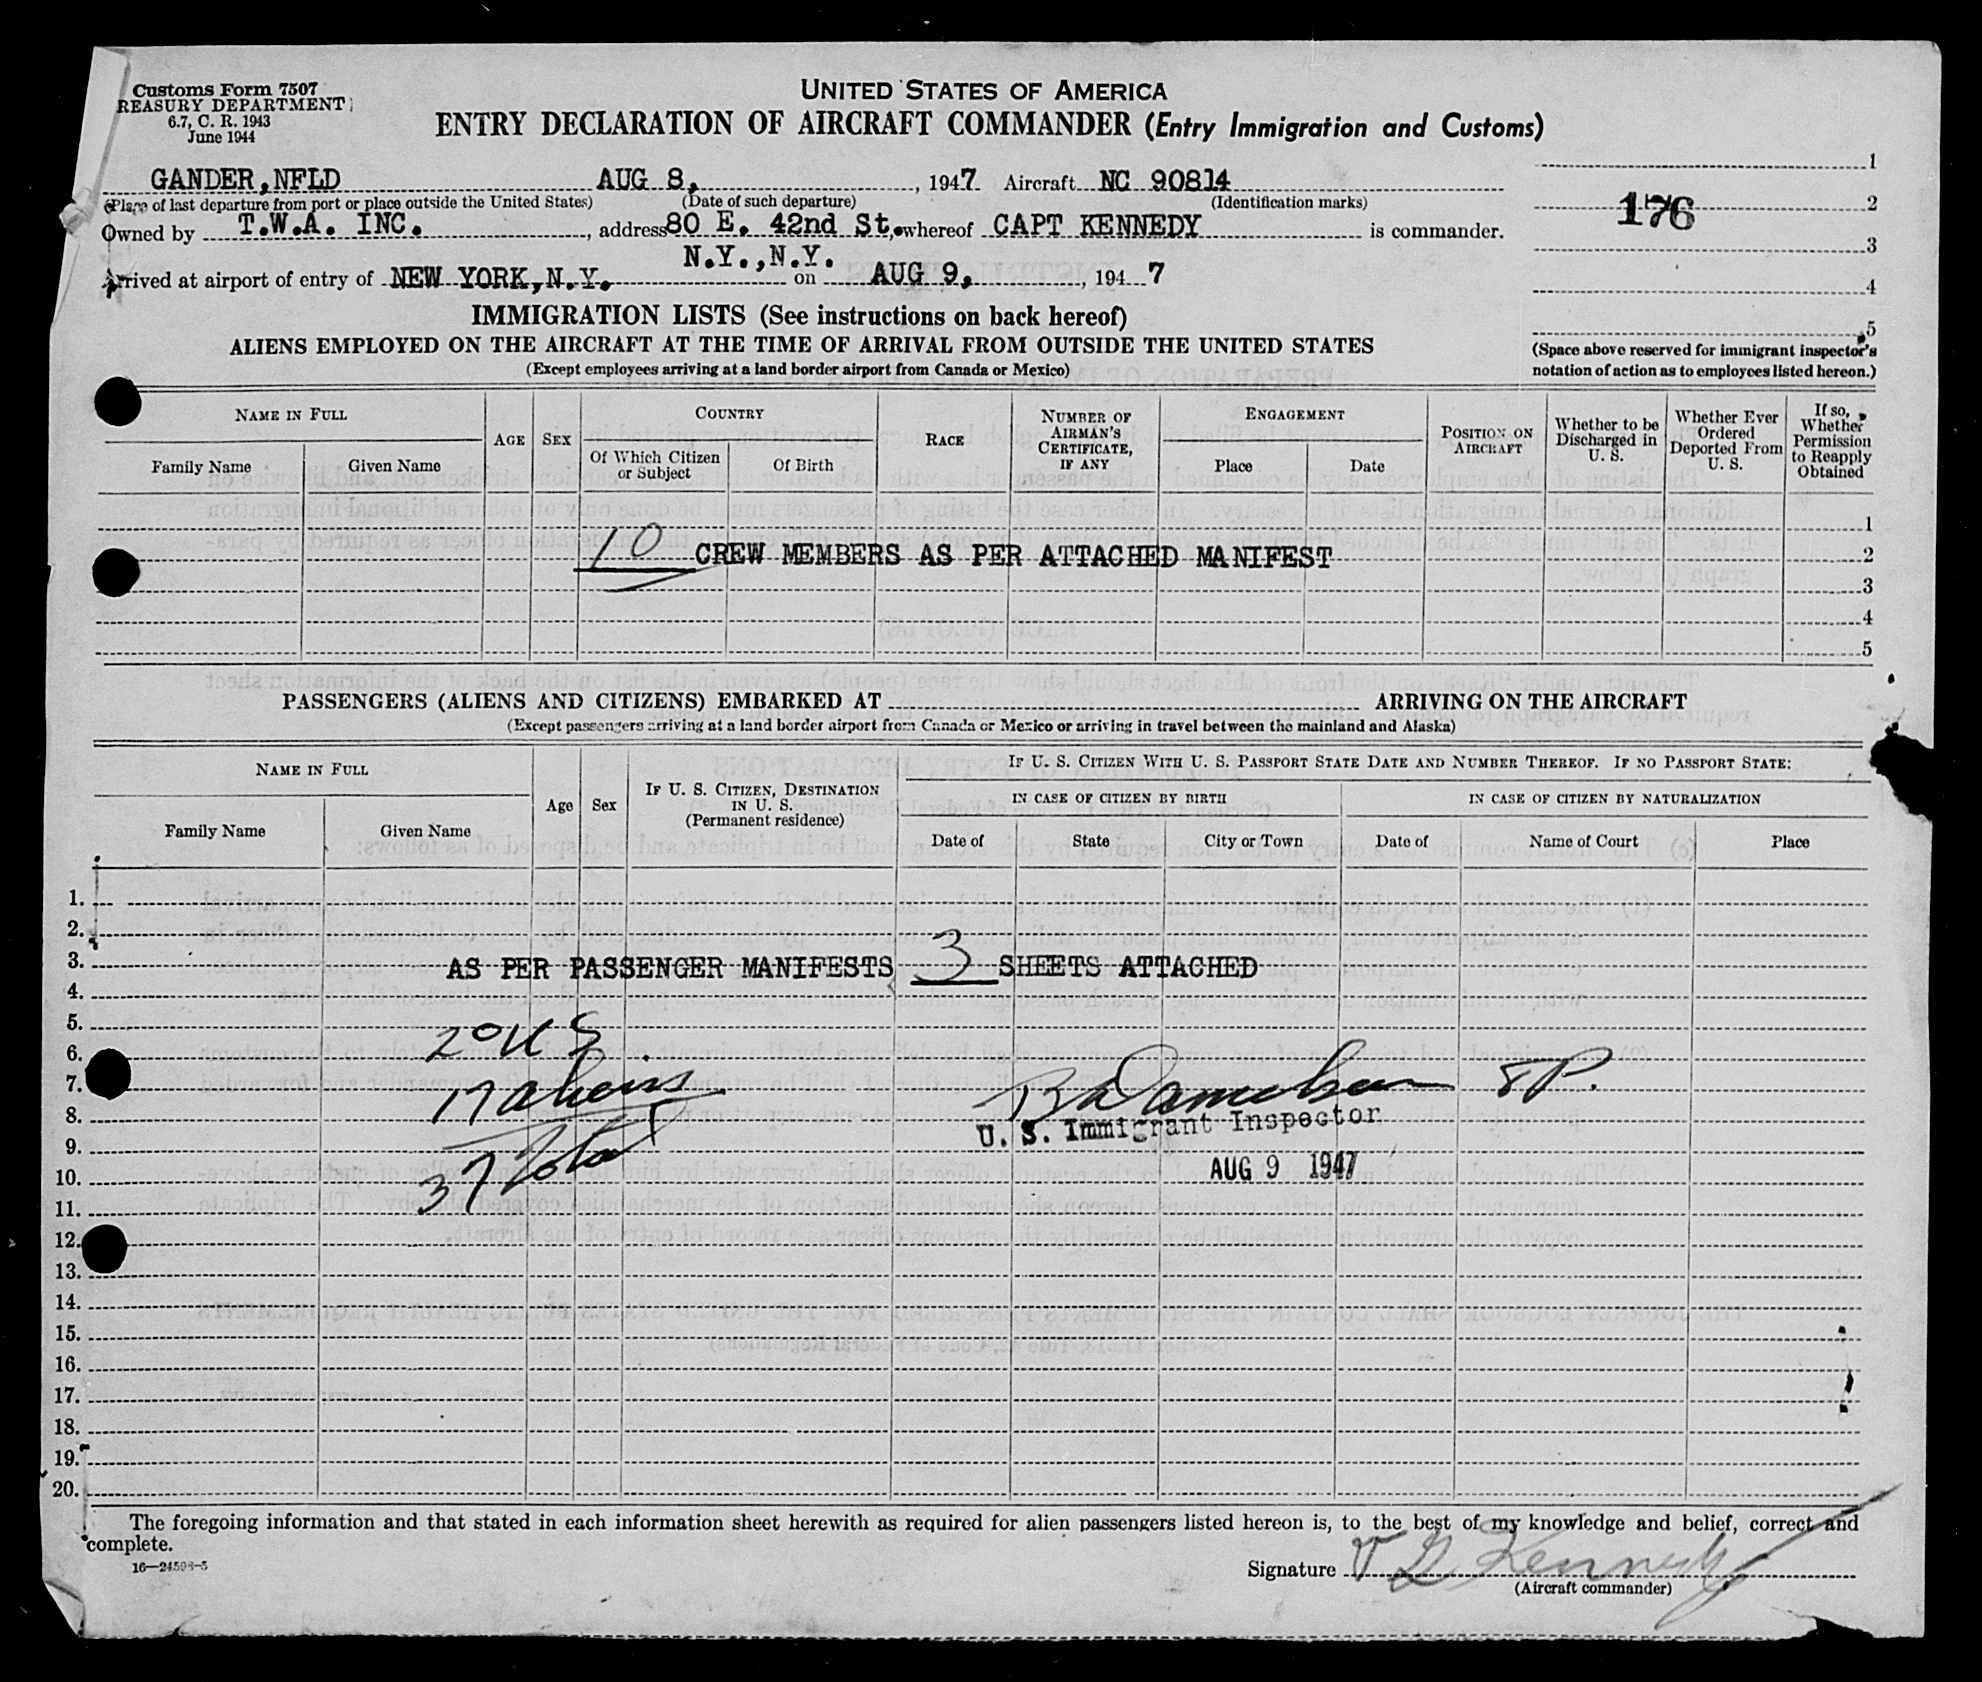 Customs Form 7507
REASURY DEPARTMENT
6.7, C. R. 1943
June 1944
UNITED STATES OF AMERICA
ENTRY DECLARATION OF AIRCRAFT COMMANDER (Entry Immigration and Customs)
GANDER,NFLD AUG 8, , 1947 Aircraft NC 90814
(Place of last departure from port or place outside the United States) (Date of such departure) (Identification marks)
Owned by T.W.A. INC. , address 80 E. 42nd St, whereof CAPT KENNEDY is commander.
N.Y.,N.Y.
Arrived at airport of entry of NEW YORK,N.Y. on AUG 9, , 194 7
1
2
176
3
4
5
(Space above reserved for immigrant inspector's
notation of action as to employees listed hereon.)
IMMIGRATION LISTS (See instructions on back hereof)
ALIENS EMPLOYED ON THE AIRCRAFT AT THE TIME OF ARRIVAL FROM OUTSIDE THE UNITED STATES
(Except employees arriving at a land border airport from Canada or Mexico)
NAME IN FULL
Family Name Given Name
AGE
SEX
COUNTRY
Of Which Citizen or Subject
Of Birth
RACE
NUMBER OF AIRMAN'S CERTIFICATE, IF ANY
ENGAGEMENT
Place Date
POSITION ON AIRCRAFT
Whether to be Discharged in U. S.
Whether Ever Ordered Deported From U. S.
If so, Whether Permission to Reapply Obtained
1
10 CREW MEMBERS AS PER ATTACHED MANIFEST 2
3
4
5
PASSENGERS (ALIENS AND CITIZENS) EMBARKED AT ARRIVING ON THE AIRCRAFT
(Except passengers arriving at a land border airport from Canada or Mexico or arriving in travel between the mainland and Alaska)
NAME IN FULL
Family Name Given Name
Age
Sex
IF U. S. CITIZEN, DESTINATION IN U. S.
(Permanent residence)
IF U. S. CITIZEN WITH U. S. PASSPORT STATE DATE AND NUMBER THEREOF. IF NO PASSPORT STATE:
IN CASE OF CITIZEN BY BIRTH IN CASE OF CITIZEN BY NATURALIZATION
Date of State City or Town Date of Name of Court Place
1.
2.
3. AS PER PASSENGER MANIFESTS 3 SHEETS ATTACHED
4.
5.
6. 20 U S
7. 17 aliens
8.
U. S. Immigrant Inspector
9.
10. 37 Total AUG 9 1947
11.
12.
13.
14.
15.
16.
17.
18.
19.
20.
The foregoing information and that stated in each information sheet herewith as required for alien passengers listed hereon is, to the best of my knowledge and belief, correct and
complete.
16—24598-5
Signature V G Kennedy
(Aircraft commander)